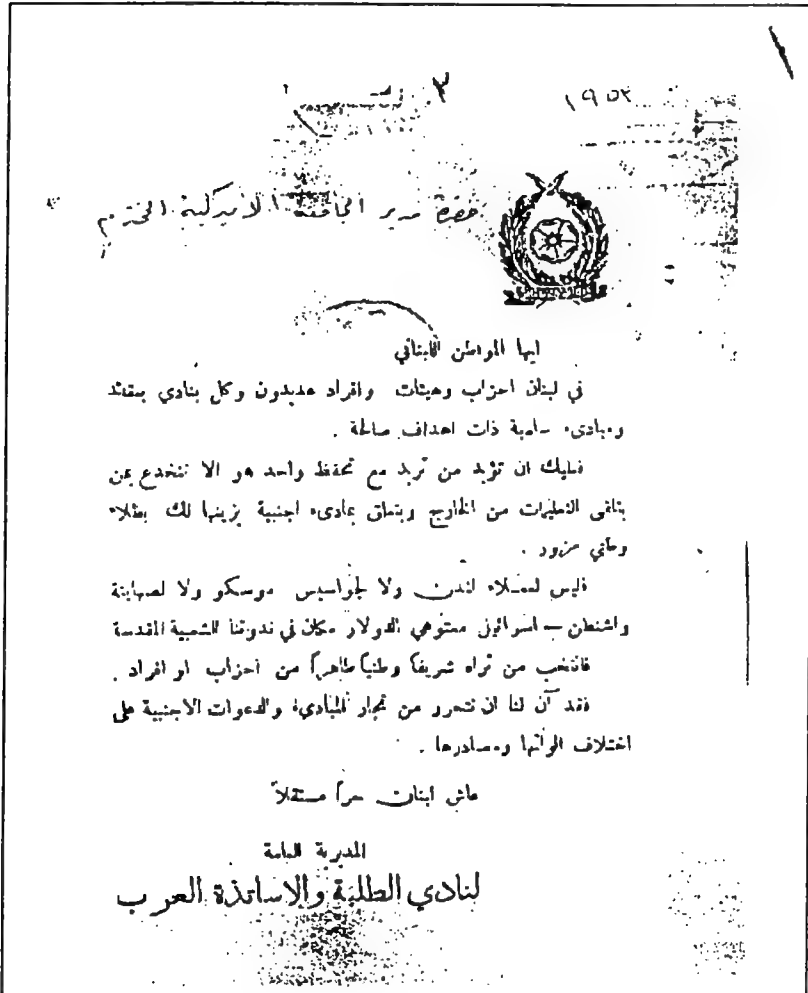 ٣
١٩٥٣
حضرة مدير الجامعة الاميركية المحترم
ايها المواطن اللبناني
في لبنان احزاب وهيئات وافراد عديدون وكل ينادي بعقائد
ومبادىء سامية ذات اهداف صالحة .
فعليك ان تؤيد من تريد مع تحفظ واحد هو الا تنخدع بمن
يتلقى التعليمات من الخارج ويتعلق بمادىء اجنبية يزينها لك بطلاء
وطني مزور .
فليس لعملاء لندن ولا لجواسيس موسكو ولا لصهاينة
واشنطن – اسرائيل معتوهي الدولار مكان في ندوتنا الشعبية المقدسة
فانتخب من تراه شريفاً وطنياً طاهراً من احزاب او افراد .
فقد آن لنا ان نتحرر من تجار المبادىء والدعوات الاجنبية على
اختلاف الوانها ومصادرها .
عاش لبنان حراً مستقلاً
المديرية العامة
لنادي الطلبة والاساتذة العرب